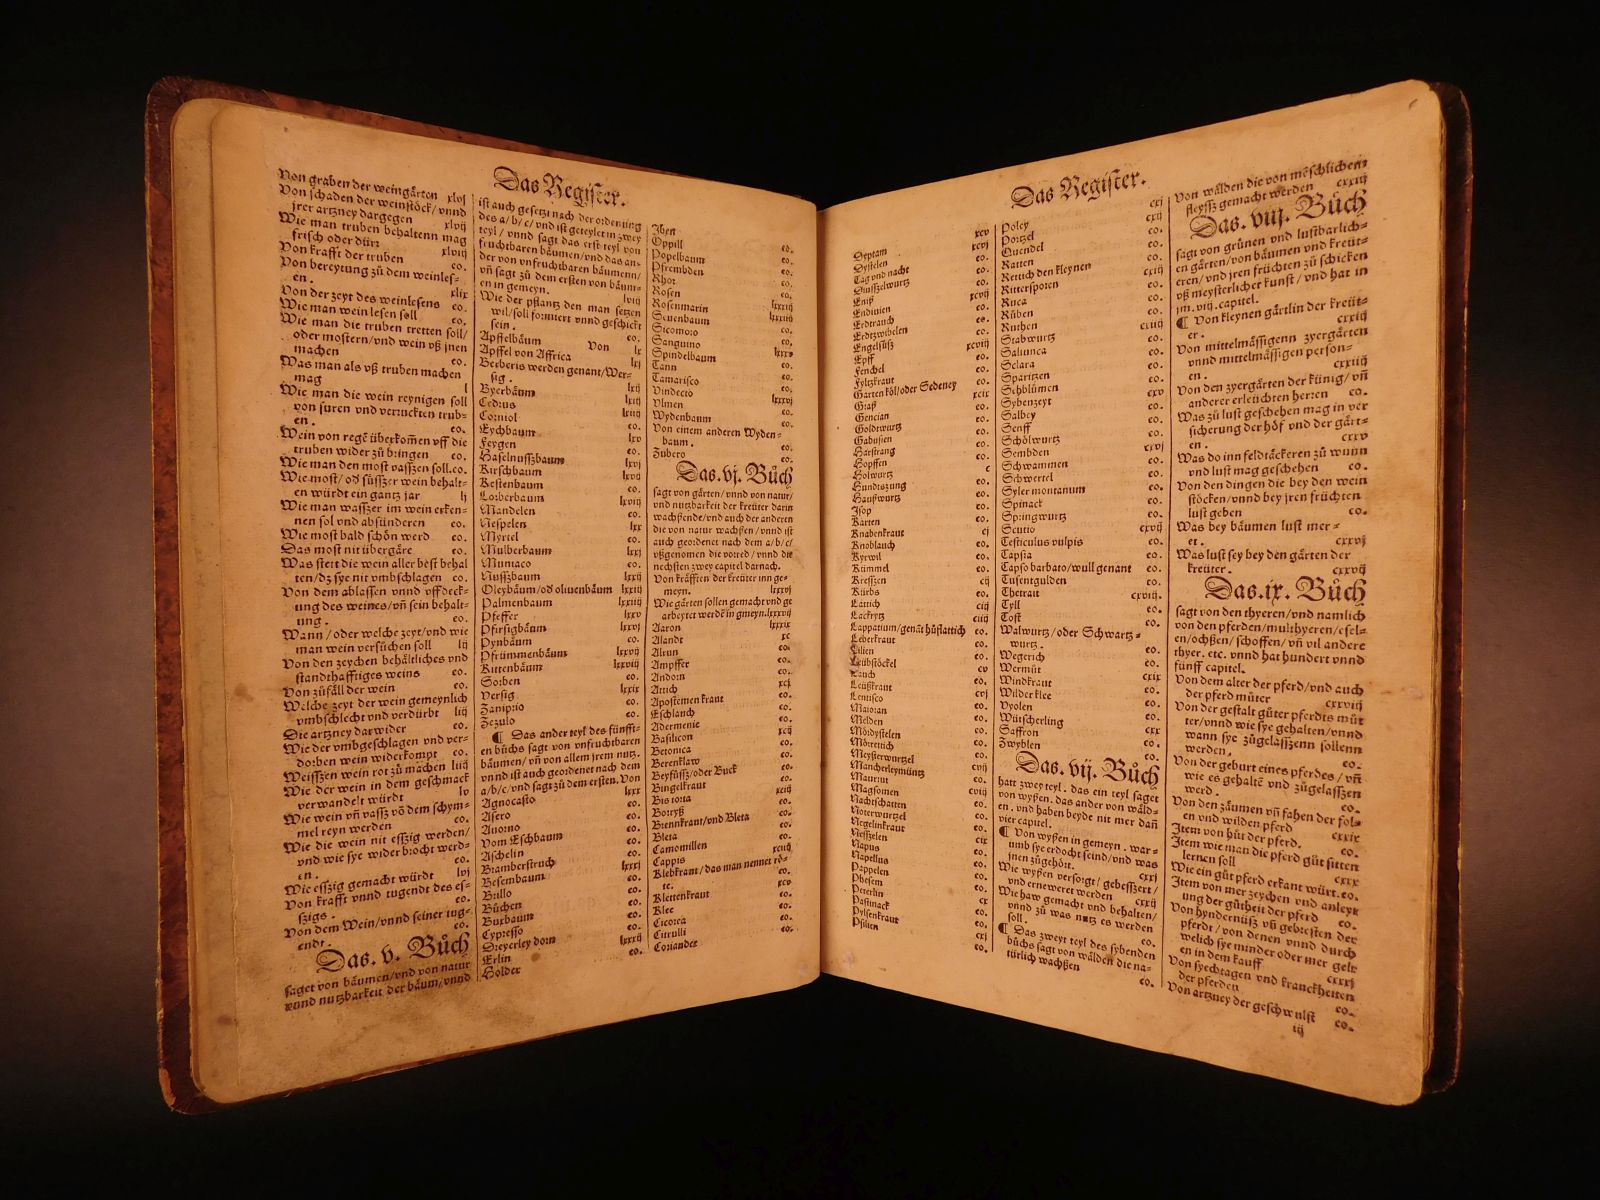 Das Register.
Von graben der weingärten xlvj
Von schaden der weinstöck/vnnd
jrer artzney dargegen xlvij
Wie man truben behaltenn mag
frisch oder dürr xlviij
Von krafft der truben eo.
Von bereytung zů dem weinles-
en.
Von der zeyt des weinlesens eo.
Wie man wein lesen soll eo.
Wie man die truben tretten soll/
oder mostern/vnd wein vß jnen
machen eo.
Was man als vß truben machen
mag l
Wie man die wein reynigen soll
von suren vnd verruckten trub-
en. eo.
Wein von regē überkom̄en vff die
truben wider zů bringen eo.
Wie man den most vassżen soll.eo.
Wie most/od süssżer wein behalt-
en würdt ein gantz jar lj
Wie man wassżer im wein erken-
nen sol vnd absünderen eo.
Wie most bald schön werd eo.
Das most nit übergäre eo.
Was stett die wein aller best behal
ten/dz sye nit vmbschlagen eo.
Von dem ablassen vnnd vffdeck-
ung des weines/vn̄ sein behalt-
ung. eo.
Wann/oder welche zeyt/vnd wie
man wein versůchen soll lij
Von den zeychen behältliches vnd
standthafftiges weins eo.
Von zůfäll der wein eo.
Welche zeyt der wein gemeynlich
vmbschlecht vnd verdürbt liij
Die artzney darwider eo.
Wie der vmbgeschlagen vnd ver-
dorben wein widerkompt eo.
Weissżen wein rot zů machen liiij
Wie der wein in dem geschmack
verwandelt würdt lv
Wie wein vn̄ vassż vō dem schym-
mel reyn werden eo.
Wie die wein nit essżig werden/
vnd wie sye widerbrocht werd-
en. eo.
Wie essżig gemacht würdt lvj
Von krafft vnnd tugendt des es-
sżigs. eo.
Von dem Wein/vnnd seiner tug-
endt. eo.
Das. v. Bůch
saget von bäumen/vnd von natur
vnnd nutzbarkeit der bäum/vnnd
ist auch gesetzt nach der ordenung
des a/b/c/ vnd ist geteylet in zwey
teyl/vnnd sagt das erst teyl von
fruchtbaren bäumen/vnd das an-
der von vnfruchtbaren bäumenn/
vn̄ sagt zů dem ersten von bäum-
en in gemeyn. lviij
Wie der pflantz den man setzen
wil/soll formiert vnnd geschickt
sein. eo.
Apfelbäum Von lx
Apffel von Affrica lxj
Berberis werden genant/Wer-
sig.
Byerbäum lxij
Cedrus lxiij
Corniol lxiiij
Eychbaum eo.
Feygen lxv
Haselnussżbaum eo.
Kirschbaum lxvj
Kestenbaum lxvij
Lorberbaum lxviij
Mandelen eo.
Nespelen lxx
Myrtel eo.
Mulberbaum lxxj
Muntaco eo.
Nussżbaum lxxij
Oleybäum/od oliuenbäum lxxiij
Palmenbaum lxxiiij
Pfeffer lxxv
Pfirsigbäum lxxvj
Pynbäum eo.
Pfrümmenbäum lxxvij
Kittenbäum lxxviij
Sorben eo.
Versig lxxix
Zaniprio eo.
Zezulo eo.
¶ Das ander teyl des fünfft-
en bůchs sagt von vnfruchtbaren
bäumen/vn̄ von allem jrem nutz.
vnnd ist auch geordenet nach dem
a/b/c/vnd sagt zů dem ersten.Von
Agnocasto lxxx
Asero eo.
Auorno eo.
Vom Eschbaum eo.
Aschelin eo.
Bramberstruch lxxxj
Besembaum eo.
Brillo eo.
Bůchen eo.
Buxbaum eo.
Cypresso eo.
Dreyerley dorn lxxxij
Erlin eo.
Holder
Jben
Oppill eo.
Popelbaum eo.
Pfrembden eo.
Rhor eo.
Rosen eo.
Rosenmarin lxxxiij
Seuenbaum lxxxiiij
Sicomoro eo.
Sanguino eo.
Spindelbaum lxxxv
Tann eo.
Tamarisco eo.
Vindecto eo.
Vlmen lxxxvj
Wydenbaum eo.
Von einem anderen Wyden-
baum. eo.
Zubero eo.
Das. vj. Bůch
sagt von gärten/vnnd von natur/
vnd nutzbarkeit der kreüter darin
wachssende/vnd auch der anderen
die von natur wachssen/vnnd ist
auch geordenet nach dem a/b/c/
vßgenomen die vorred/vnnd die
nechsten zwey capitel darnach.
Von kräfften der kreüter inn ge-
meyn. lxxxvj
Wie gärten sollen gemacht vnd ge
arbeytet werdē in gmeyn.lxxxvij
Aaron lxxxix
Alandt xc
Alrun eo.
Ampffer eo.
Andorn eo.
Attich xcj
Apostemenkraut eo.
Eschlauch eo.
Adermenie eo.
Basilicon xcij
Betonica eo.
Berenklaw eo.
Beyfůssż/oder Buck eo.
Bingelkraut eo.
Bistorta xciij
Botryß eo.
Brennkraut/vnd Bleta eo.
Bleta eo.
Camomillen eo.
Cappis xciiij
Klebkraut/das man nennet rö-
te. eo.
Klettenkraut xcv
Klee eo.
Cicorea eo.
Citrulli eo.
Coriander eo.
Das Register.
Dyptam xcv
Dystelen xcvj
Tag vnd nacht eo.
Diussżelwurtz eo.
Eniß eo.
Endiuien xcvij
Erdtrauch eo.
Erdtzwibelen eo.
Engelsüß xcviij
Epff eo.
Fenchel eo.
Fyltzkraut eo.
Garten köl/oder Sedeney xcix
Graß eo.
Gencian eo.
Goldtwurtz eo.
Gabusien eo.
Harstrang eo.
Hopffen eo.
Holwurtz c
Hundtszung eo.
Haußwurtz eo.
Jsop eo.
Karten eo.
Knabenkraut cj
Knoblauch eo.
Kyrwil eo.
Kümmel eo.
Kressżen cij
Kürbs eo.
Lattich ciij
Lackrytz ciiij
Lappatium/genāt hůflattich eo.
Leberkraut eo.
Lilien eo.
Lübstöckel eo.
Lauch cv
Leüßkraut eo.
Lentisco cvj
Maioran eo.
Melden eo.
Mördystelen eo.
Mörrettich eo.
Meysterwurtzel eo.
Mancherleymüntz cvij
Maurrut eo.
Magsomen cviij
Nachtschatten eo.
Noterwurtzel eo.
Negelinkraut eo.
Nessżelen cix
Napus eo.
Napellus eo.
Pappelen eo.
Phesem eo.
Peterlin eo.
Pastinack cx
Pylsenkraut eo.
Psilien cxj
Poley cxj
Portzel cxij
Quendel eo.
Ratten eo.
Rettich den kleynen cxiij
Rittersporen eo.
Ruca eo.
Rüben eo.
Ruthen cxiiij
Stabwurtz eo.
Saliunca eo.
Sclara eo.
Sparitzen eo.
Sehblůmen cxv
Sybenzeyt eo.
Salbey eo.
Senff eo.
Schölwurtz eo.
Sembden cxvj
Schwammen eo.
Schwertel eo.
Syler montanum eo.
Spinack eo.
Springwurtz eo.
Scutio cxvij
Testiculus vulpis eo.
Tapsia eo.
Tapso barbato/wull genant eo.
Tusentgulden eo.
Thetrait cxviij.
Tyll eo.
Tost eo.
Walwurtz/oder Schwartz-
wurtz. eo.
Wegerich eo.
Wermůt eo.
Windkraut cxix
Wilderklee eo.
Vyolen eo.
Wütscherling eo.
Saffron cxx
Zwyblen eo.
Das. vij. Bůch
hatt zwey teyl. das ein teyl saget
von wysen. das ander von wäld-
en. vnd haben beyde nit mer dan̄
vier capitel.
¶ Von wyßen in gemeyn. war-
umb sye erdocht seind/vnd was
jnen zůgehört. cxxj
Wie wyßen versorgt/gebessżert/
vnd erneweret werden cxxij
Wie haw gemacht vnd behalten/
vnnd zů was nutz es werden
soll. eo.
¶ Das zweyt teyl des sybenden
bůchs sagt von wälden die na-
türlich wachßen eo.
Von wälden die von mēschlichen
fleyssż gemacht werden cxxiij
Das. viij. Bůch
sagt von grünen vnd lustbarlich-
en gärten/von bäumen vnd kreüt-
eren/vnd jren früchten zů schicken
vß meysterlicher kunst/vnd hat in
jm. viij. capitel.
¶ Von kleynen gärtlin der kreüt-
er. cxxiij
Von mittelmässigenn zyergärten
vnnd mittelmässigen person-
en. cxxiiij
Von den zyergärten der künig/vn̄
anderer erleüchten herren eo.
Was zů lust geschehen mag in ver
sicherung der höf vnd der gärt-
en. cxxv
Was do inn feldtäckeren zů wunn
vnd lust mag geschehen eo.
Von den dingen die bey den wein
stöcken/vnnd bey jren früchten
lust geben eo.
Was bey bäumen lust mer-
et. cxxvj
Was lust sey bey den gärten der
kreüter. cxxvij
Das. ix. Bůch
sagt von den thyeren/vnd namlich
von pferden/multhyeren/esel-
en/ochßen/schoffen/vn̄ vil andere
thyer. etc. vnnd hat hundert vnnd
fünff capitel.
Von dem alter der pferd/vnd auch
der pferd můter cxxviij
Von der gestalt gůter pferdts můt
ter/vnnd wie sye gehalten/vnnd
wann sye zůgelassżenn sollenn
werden. eo.
Von der geburt eines pferdes/vn̄
wie es gehaltē vnd zůgelassżen
werd. eo.
Von den zäumen vn̄ fahen der fol-
en vnd wilden pferd cxxix
Jtem von hůt der pferd. eo.
Jtem wie man die pferd gůt sitten
lernen soll cxxx
Wie ein gůt pferd erkant würt.eo.
Jtem von mer zeychen vnd anleyt
ung der gůtheit der pferd eo.
Von hyndernüssż vn̄ gebresten der
pferdt/von denen vnnd durch
welich sye minder oder mer gelt
en in dem kauff cxxxj
Von syechtagen vnd kranckheiten
der pferden eo.
Von artzney der geschwulst eo.
iij